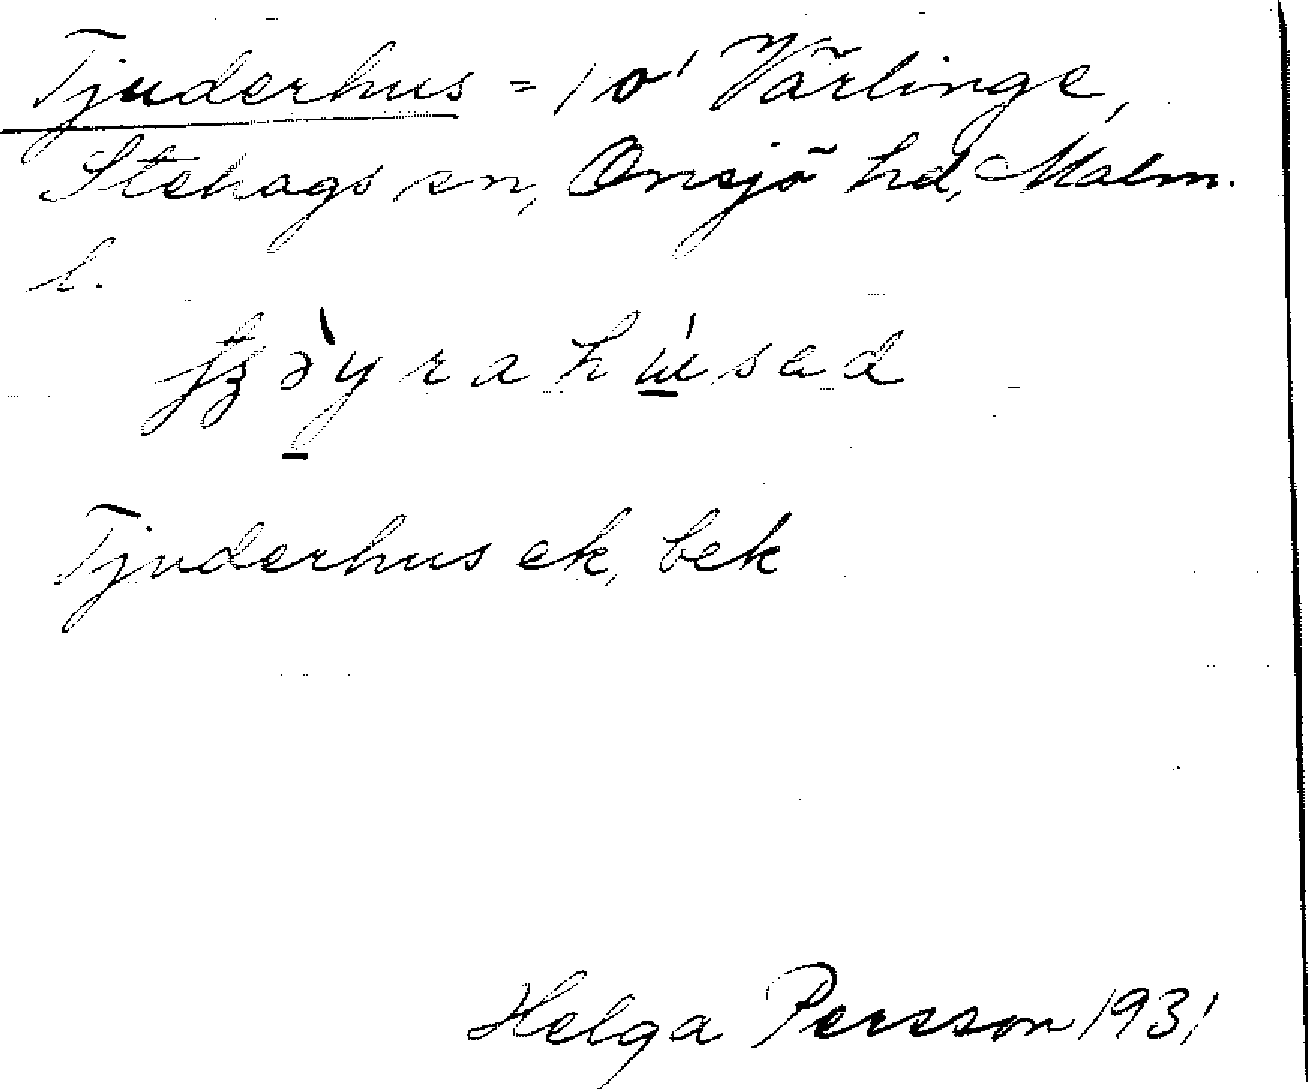 Tjuderhus = 1 o' Värlinge,
Stehags sn, Onsjö hd, Malm.
l.
Tjuderhus ek, bek
Helga Persson 1931